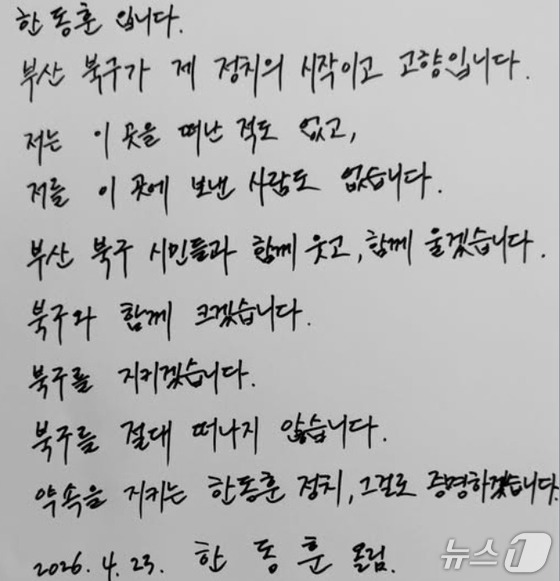 한동훈 입니다.
부산 북구가 제 정치의 시작이고 고향입니다.
저는 이 곳을 떠난 적도 없고,
저를 이 곳에 보낸 사람도 없습니다.
부산 북구 시민들과 함께 웃고, 함께 울겠습니다.
북구와 함께 크겠습니다.
북구를 지키겠습니다.
북구를 절대 떠나지 않습니다.
약속을 지키는 한동훈 정치, 그걸로 증명하겠습니다.
2026. 4. 23. 한 동 훈 올림.
뉴스1